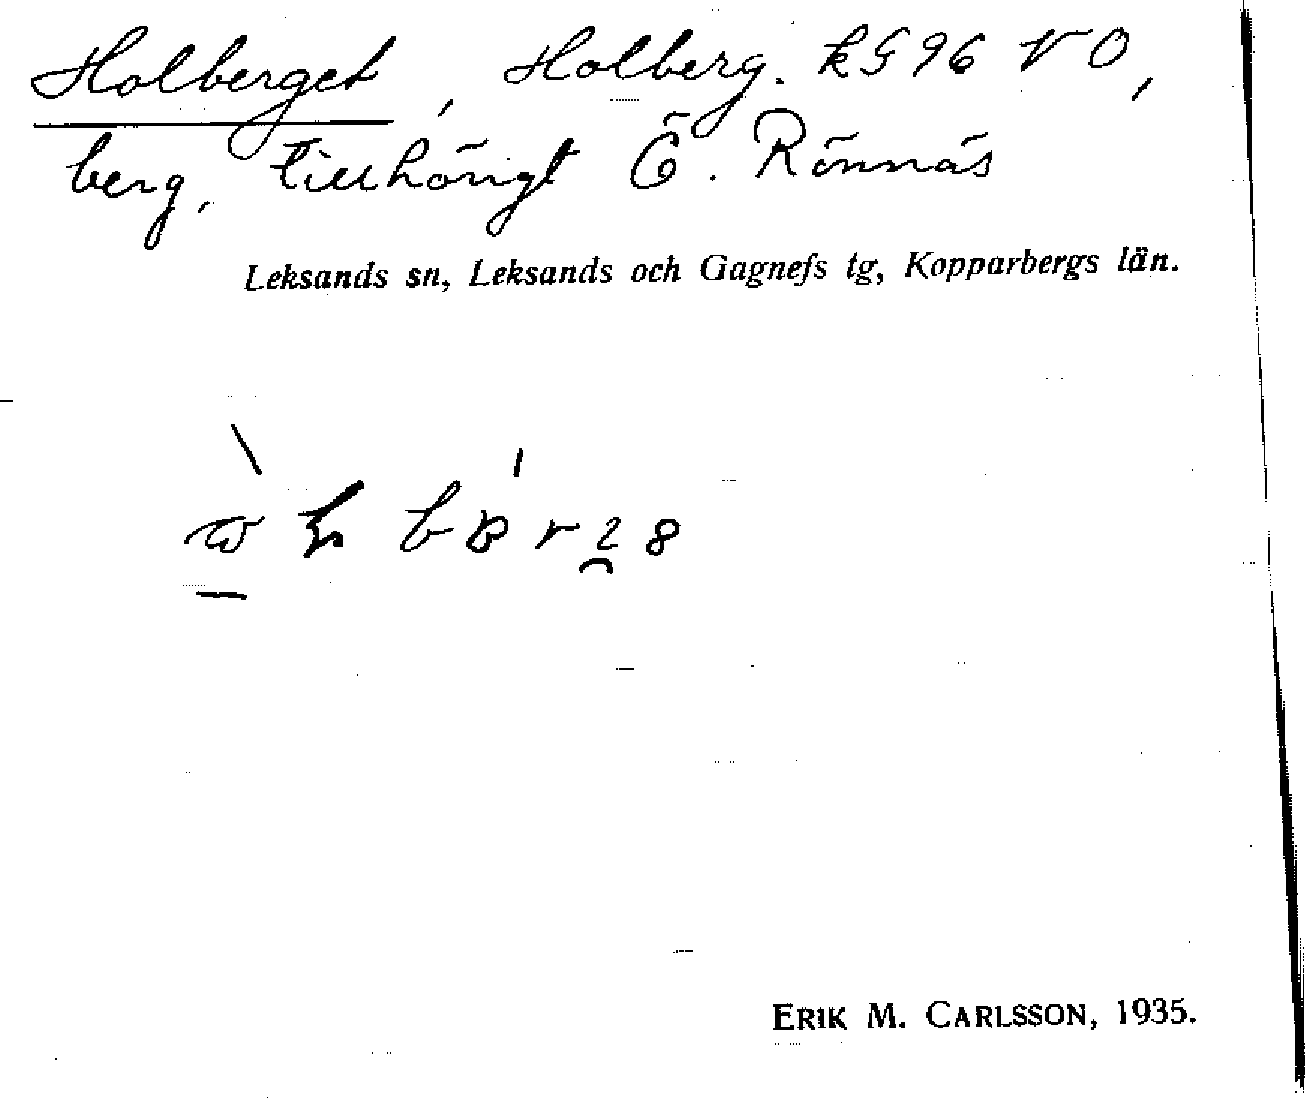 Holberget, Holberg. kG 96 VO,
berg, tillhörigt Ö. Rönnäs
Leksands sn, Leksands och Gagnefs tg, Kopparbergs län.
ERIK M. CARLSSON, 1935.